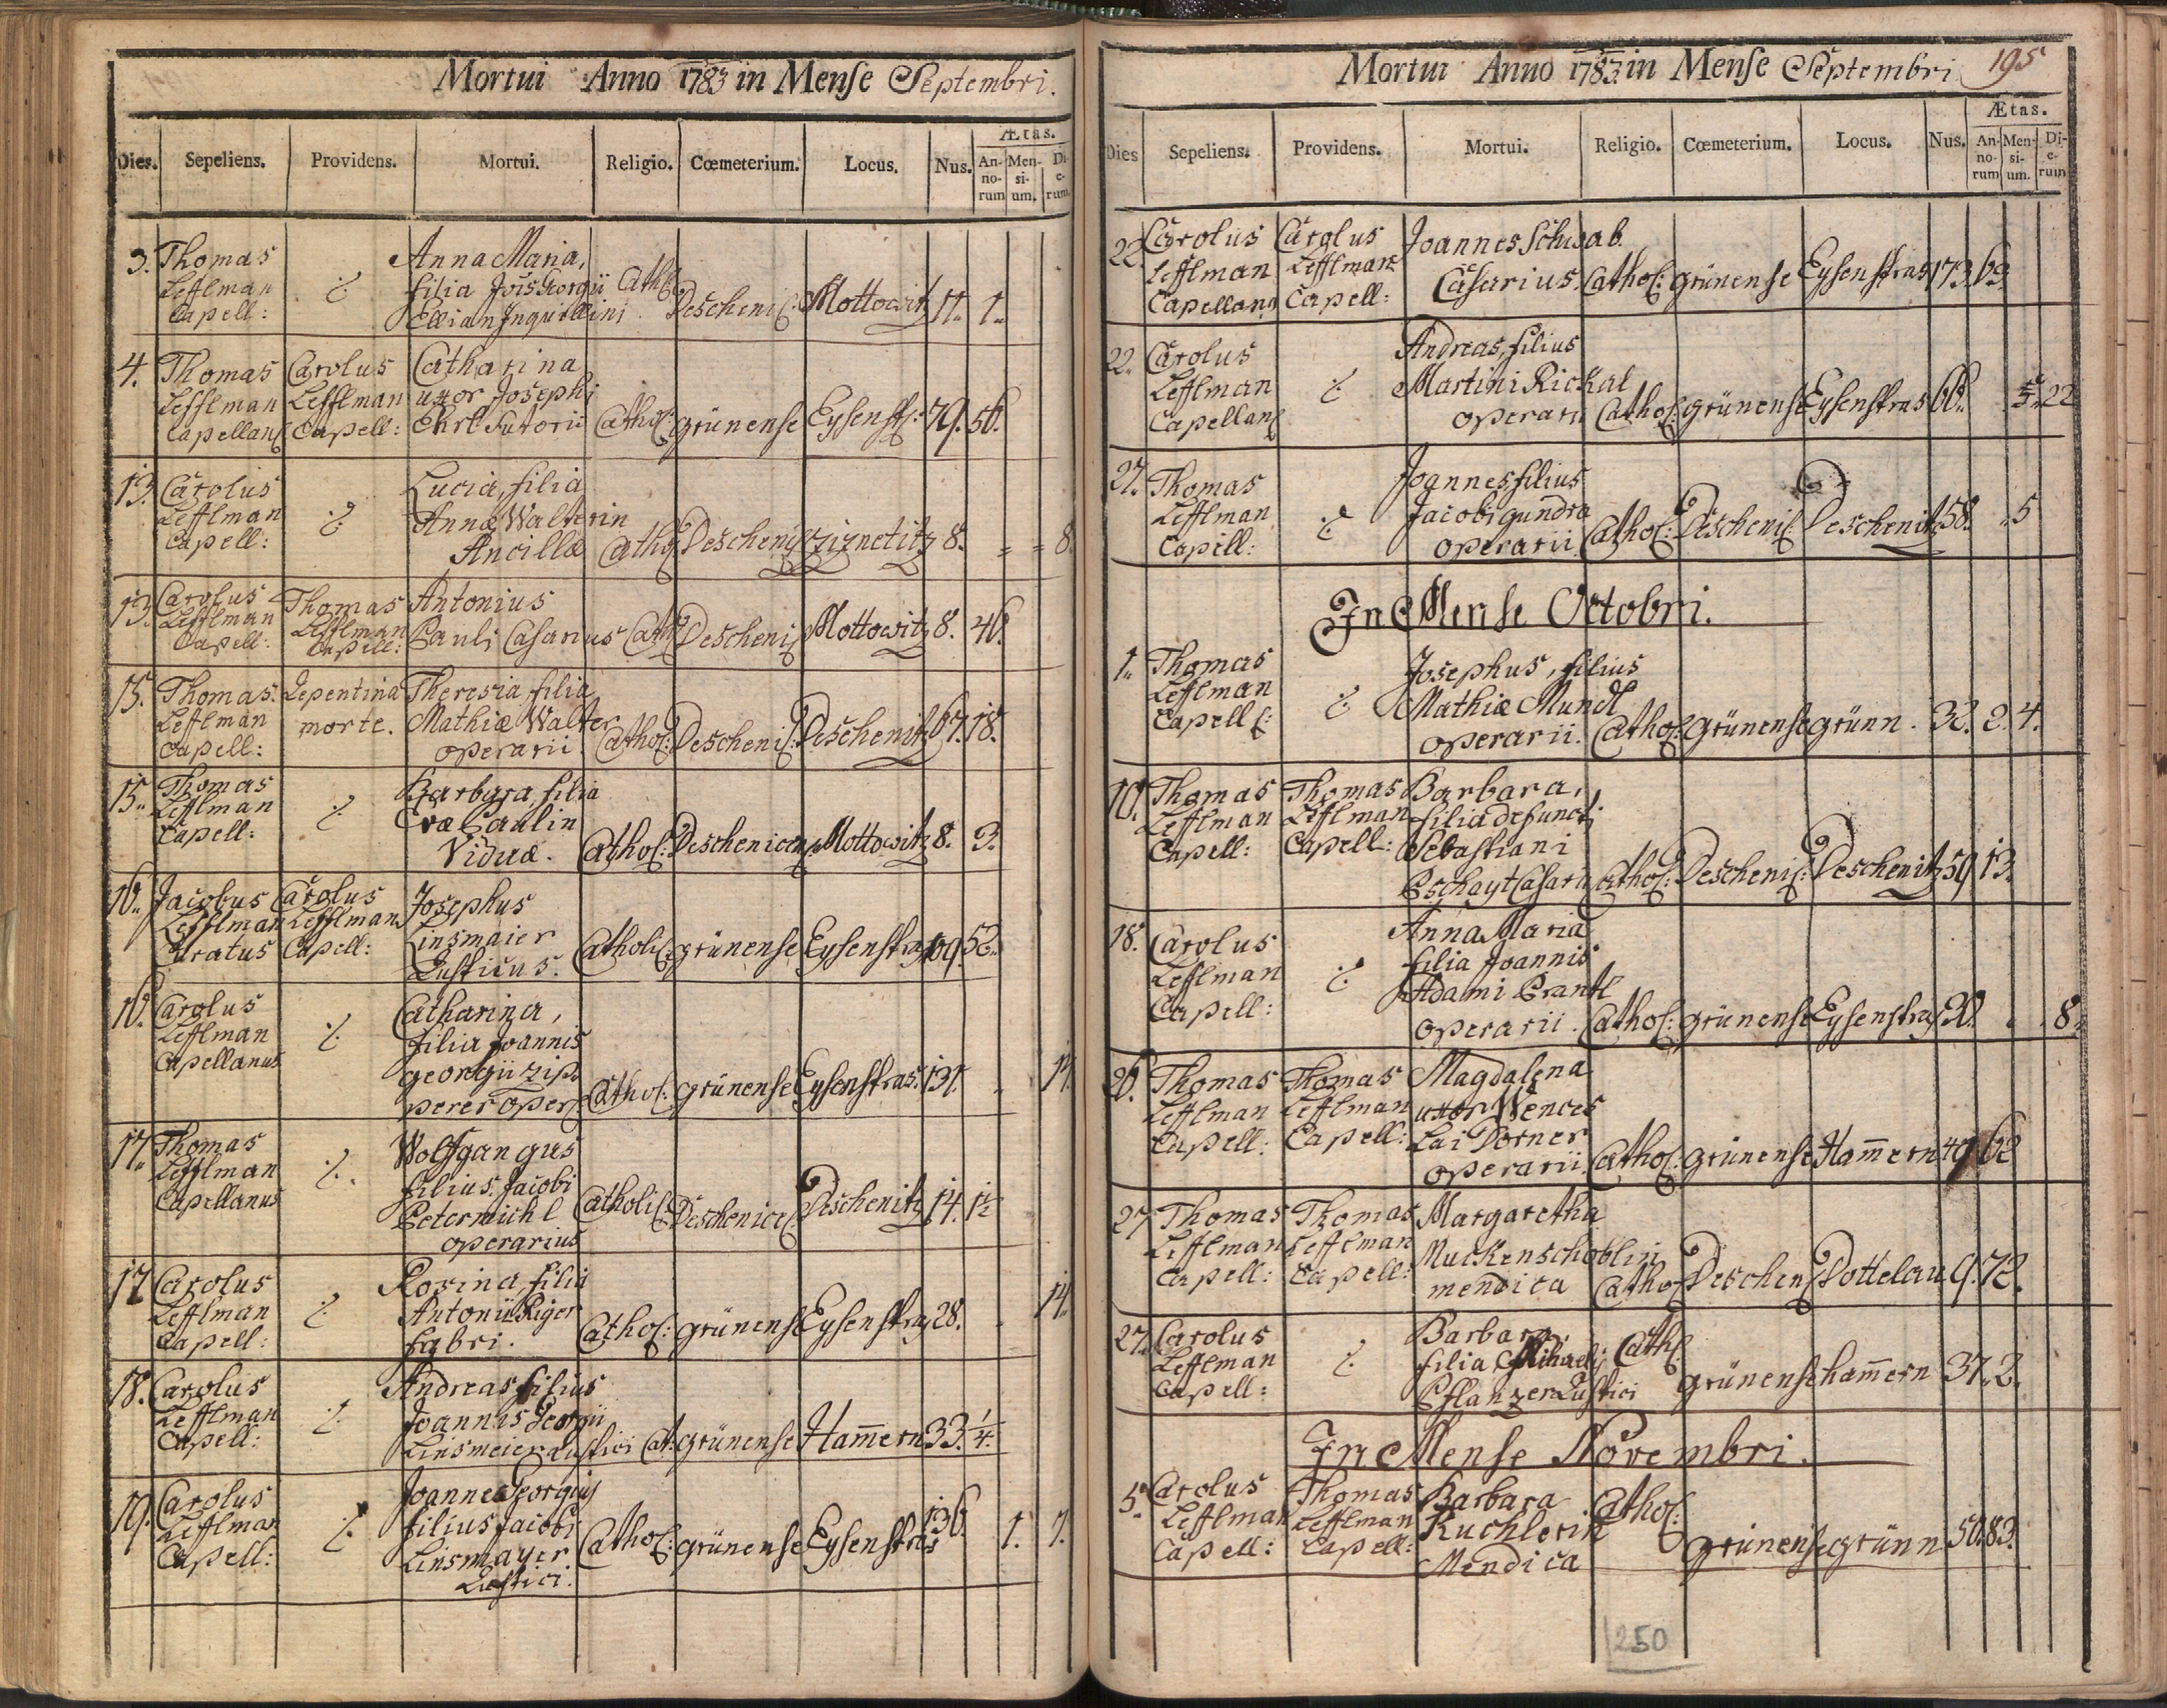 Mortui Anno 1783 in Mense Septembri.
Ætas.
Dies. Sepeliens. Providens. Mortui. Religio. Cœmeterium. Locus. Nus. An-no-rum Men-si-um. Di-e-rum
3. Thomas Lefflman Capell: ·/. Anna Maria, filia Jois Georgii Ellian Inquillini Cath: Deschenis: Mottowitz 11. 1.
4. Thomas Lefflman Capellans Carolus Lefflman Capell: Catharina uxor Josephi Ehrl Sutorii Cathol: grünense Eysenst: 79. 56.
13. Carolus Lefflman Capell: ·/. Lucia, filia Annæ Walterin Ancillæ Cathol: Deschenis Ziznetitz 8. " " 8.
13. Carolus Lefflman Capell: Thomas Lefflman Capell: Antonius Pauls Casarius Cath: Deschenis Mottowitz 8. 46.
15. Thomas Lefflman Capell: Repentina morte. Theresia filia Mathiæ Walter operarii. Cathol: Deschenis: Deschenitz 67. 18.
15. Thomas Lefflman Capell: ·/. Barbara, filia Evæ Paulin Viduæ. Cathol: Deschenicens Mottowitz 8. 3.
16. Jacobus Lefflman Curatus Carolus Lefflman Capell: Josephus Linsmaier Rusticus. Catholi: grünense Eysenstras 109. 52.
16. Carolus Lefflman Capellanus ·/. Catharina, filia Joannis georgii zip pereroper: Cathol: grünense Eysenstras. 131. 14.
17. Thomas Lefflman Capellanus ·/. Wolfgangus filius Jacobi Petermichl operarius Catholi: Deschenice: Deschenitz 14. 1½
17. Carolus Lefflman Capell: ·/. Rosina, filia Antonii Riger fabri. Cathol: grünense Eysenstras 28. 14.
18. Carolus Lefflman Capell: ·/. Andreas filius Joannis Georgii Linsmeier Rustici Cat: grünense Ham̅ern 33. ¼.
19. Carolus Lefflman Capell: ·/. Joannes Georgius filius Jacobi Linsmayer Rustici. Cathol: grünense Eysenstras 136. 1. 7.
Mortui Anno 1783 in Mense Septembri 195
Ætas.
Dies Sepeliens. Providens. Mortui. Religio. Cœmeterium. Locus. Nus. An-no-rum Men-si-um. Di-e-rum
22. Carolus Lefflman Capellans Carolus Lefflman Capell: Joannes Schwab Casarius. Cathol: grünense Eysenstras 173 69
22. Carolus Lefflman Capellans ·/. Andreas, filius Martini Rickal operarii Cathol: grünense Eysenstras 66. 5. 22
27. Thomas Lefflman Capell: ·/. Joannes filius Jacobi gundra operarii Cathol: Deschenis: Deschenitz 58. 5
In Mense Octobri.
1. Thomas Lefflman Capell: ·/. Josephus, filius Mathiæ Mundl operarii. Cathol: grünense grünn. 32. 2. 4.
10. Thomas Lefflman Capell: Thomas Lefflman Capell: Barbara, filia defuncti Sebastiani Pschayt Casarii Cathol: Deschenis: Deschenitz 59 13.
18. Carolus Lefflman Capell: ·/. Anna Maria filia Joannis Adami Prantl operarii. Cathol: grünense Eysenstras 20. 8.
26. Thomas Lefflman Capell: Thomas Lefflman Capell: Magdalena uxor Wences Lai Dorner operarii. Cathol: grünense Ham̅ern 49 62
27. Thomas Lefflman Capell: Thomas Lefflman Capell: Margaretha Muckenschoblin mendica Cathol Deschens Dottelau 9. 72.
27. Carolus Lefflman Capell: ·/. Barbara, filia Mihaelis Pflanzer Rustici Cath: grünense ham̅ern 37. 2.
In Mense Novembri.
5. Carolus Lefflman Capell: Thomas Lefflman Capell: Barbara Kuchlerin Mendica Cathol: grünense grünn 50. 83.
250